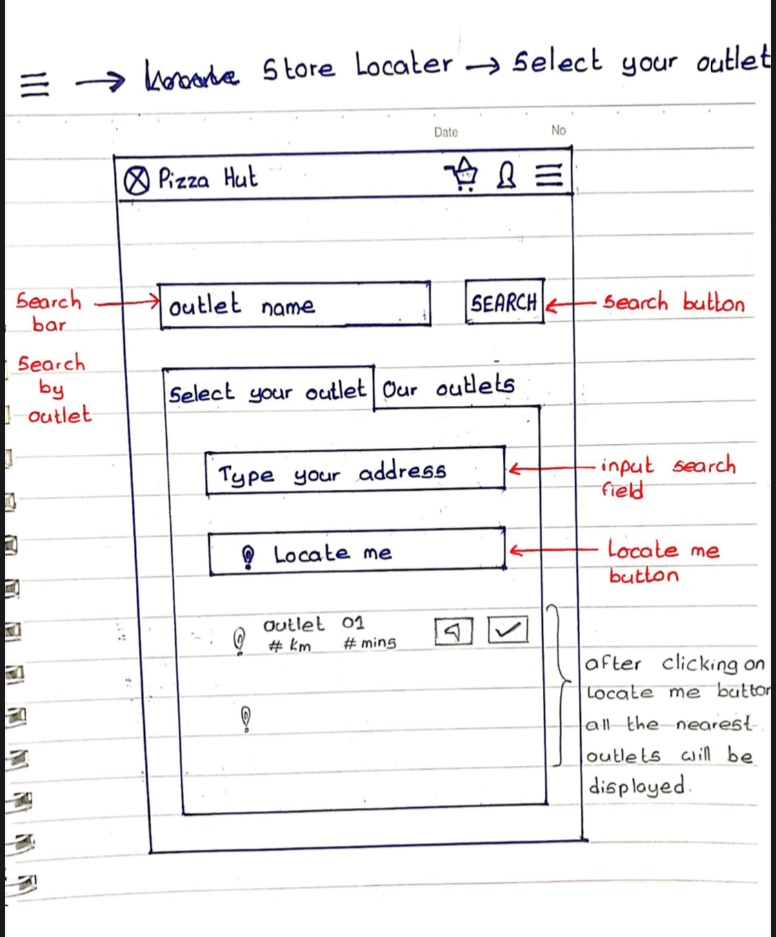 Store Locater → Select your outlet
Date No
Pizza Hut
Search
bar
outlet name
SEARCH
Search button
Search
by
outlet
Select your outlet
Our outlets
Type your address
input search
field
Locate me
Locate me
button
outlet 01
# km # mins
after clicking on
Locate me button
all the nearest
outlets will be
displayed.